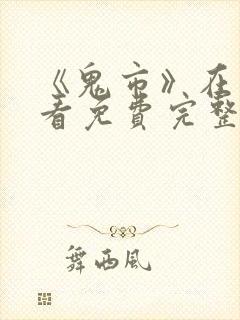 《鬼市》在
看免费完整
舞西风